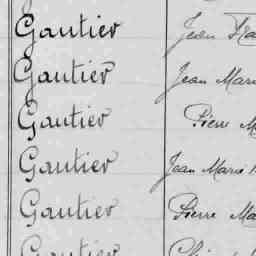 Gautier Jean
Gautier Jean Marie
Gautier Pierre M
Gautier Jean Marie
Gautier Pierre Ma
Gautier